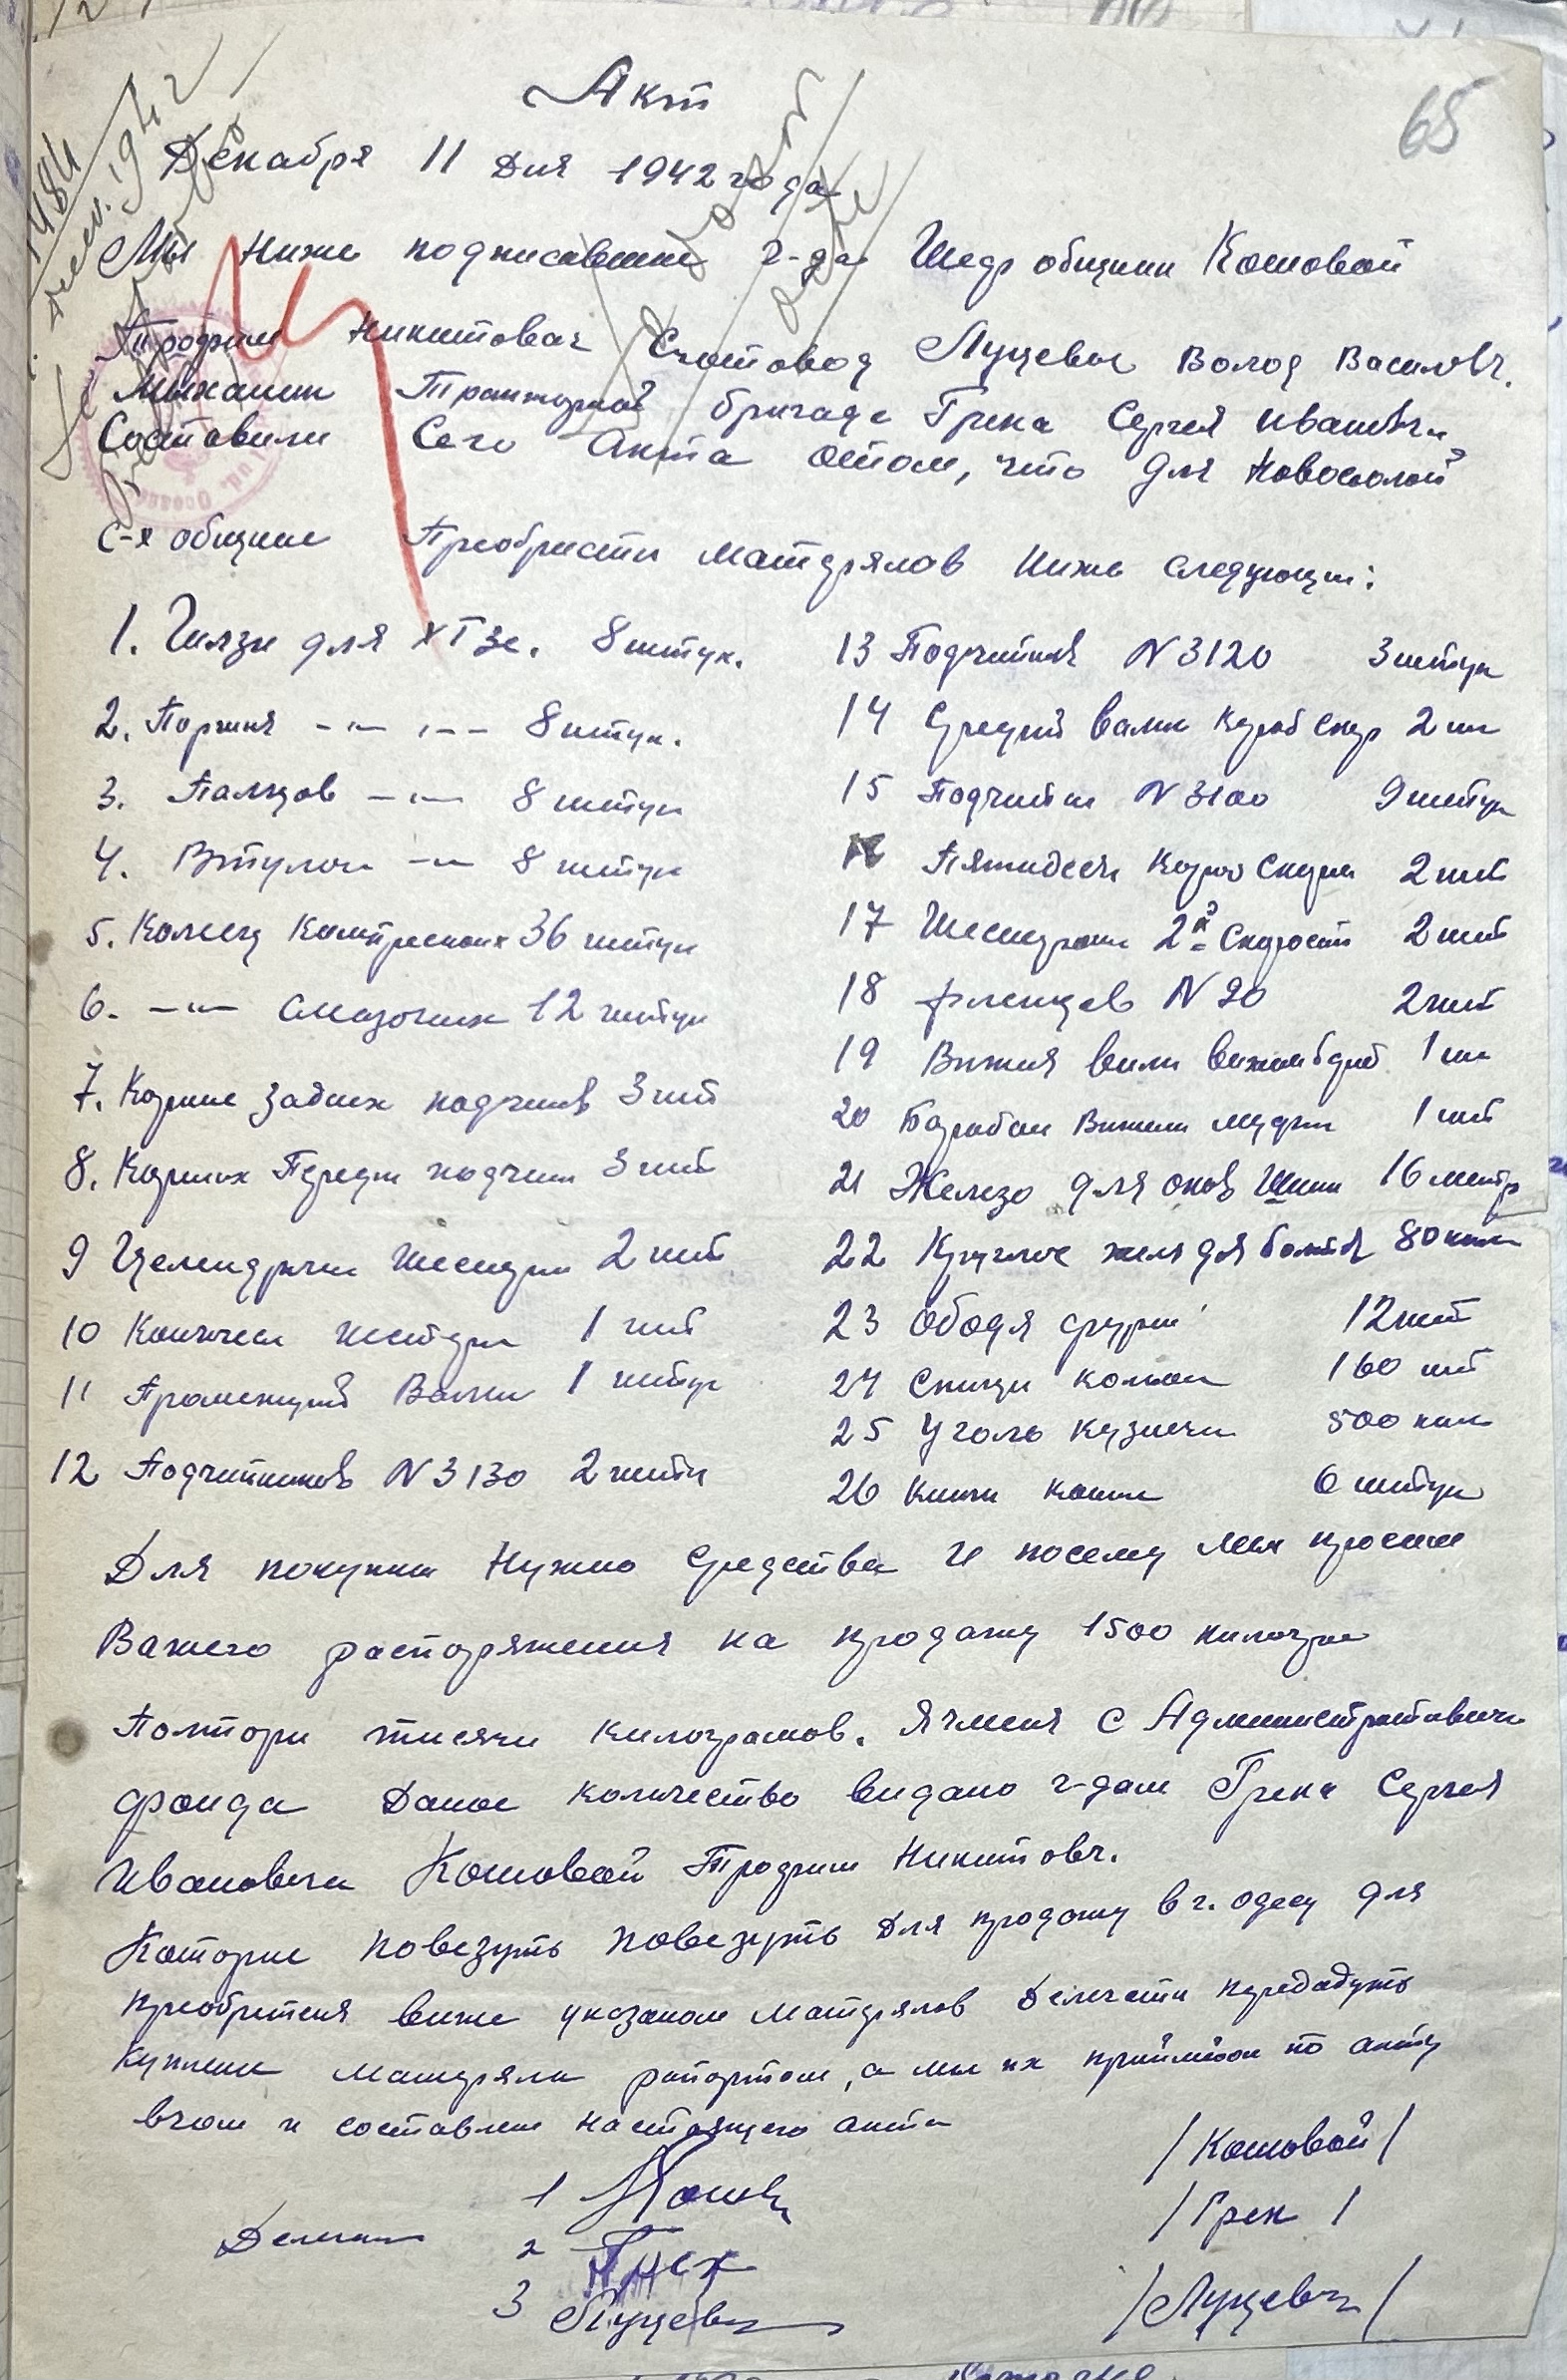 Акт
65
Декабря 11 Дня 1942 года
1942
Мы Ниже подписавшие г-да Шедр общины Кошовой
Трофим Никитовач Счетовод Луцевич Волод Василовч.
Механик Тракторной бригаде Грека Сергея Ивановича
Составили Сего Акта отом, что для Новоселой
с-х общине Преобристи матерялов ниже следующи:
1. Гилзи для ХТЗе. 8 штук.
2. Поршня -"- -"- 8 штук.
3. Палцов -"- 8 штук
4. Втулок -"- 8 штук
5. Колец Компресионх 36 штук
6. -"- смазочних 12 штук
7. Кориних Задних подчипв 3 шт
8. Кориних Передн подчип 3 шт
9 Целендричи шестрни 2 шт
10 Коничеси шестрни 1 шт
11 Промежутой Валик 1 штук
12 Подчипников N 3130 2 шту
13 Подчипник N 3120 3 штук
14 Средний валик короб скор 2 шт
15 Подчипни N 3100 9 штук
16 Короб Скорос 2 шт
17 Шестерони 2й Скорост 2 шт
18 фленцев N 20 2 шт
19 1 шт
20 Барабан муфти 1 шт
21 Железо для оков Шини 16 метр
22 Круглое желз для болтов 80 кил
23 Ободя 12 шт
24 Спици колеси 160 шт
25 Уголь кузнечн 500 кил
26 6 штук
Для покупки Нужно Средства и посему мы просим
Вашего распоряжения на продажу 1500 килогрм
Полтори тисячи килограмов. Ячменя с Административни
фонда Даное количество видано г-дам Грека Сергея
Ивановича Кошовой Трофим Никитовч.
Котории повезуть повезуть для продажу в г. одесу для
преобритеня више указаном матерялов Делегати передадуть
Куплени матеряли рапортом, а мы их приймйом по акту
вчом и составлен настоящего акта
Делегати 1 Кошов /Кошовой/
2 Грек /Грек/
3 Луцевич /Луцевич/